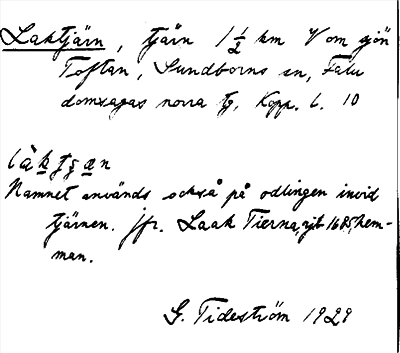 Laktjärn, tjärn 1 1/2 km V om sjön
Toftan, Sundborns sn, Falu
domsagas norra tg, Kopp. l. 10
làktjæn
Namnet används också på odlingen invid
tjärnen. jfr. Laak Tierna, 1685, hem-
man.
G. Tideström 1929